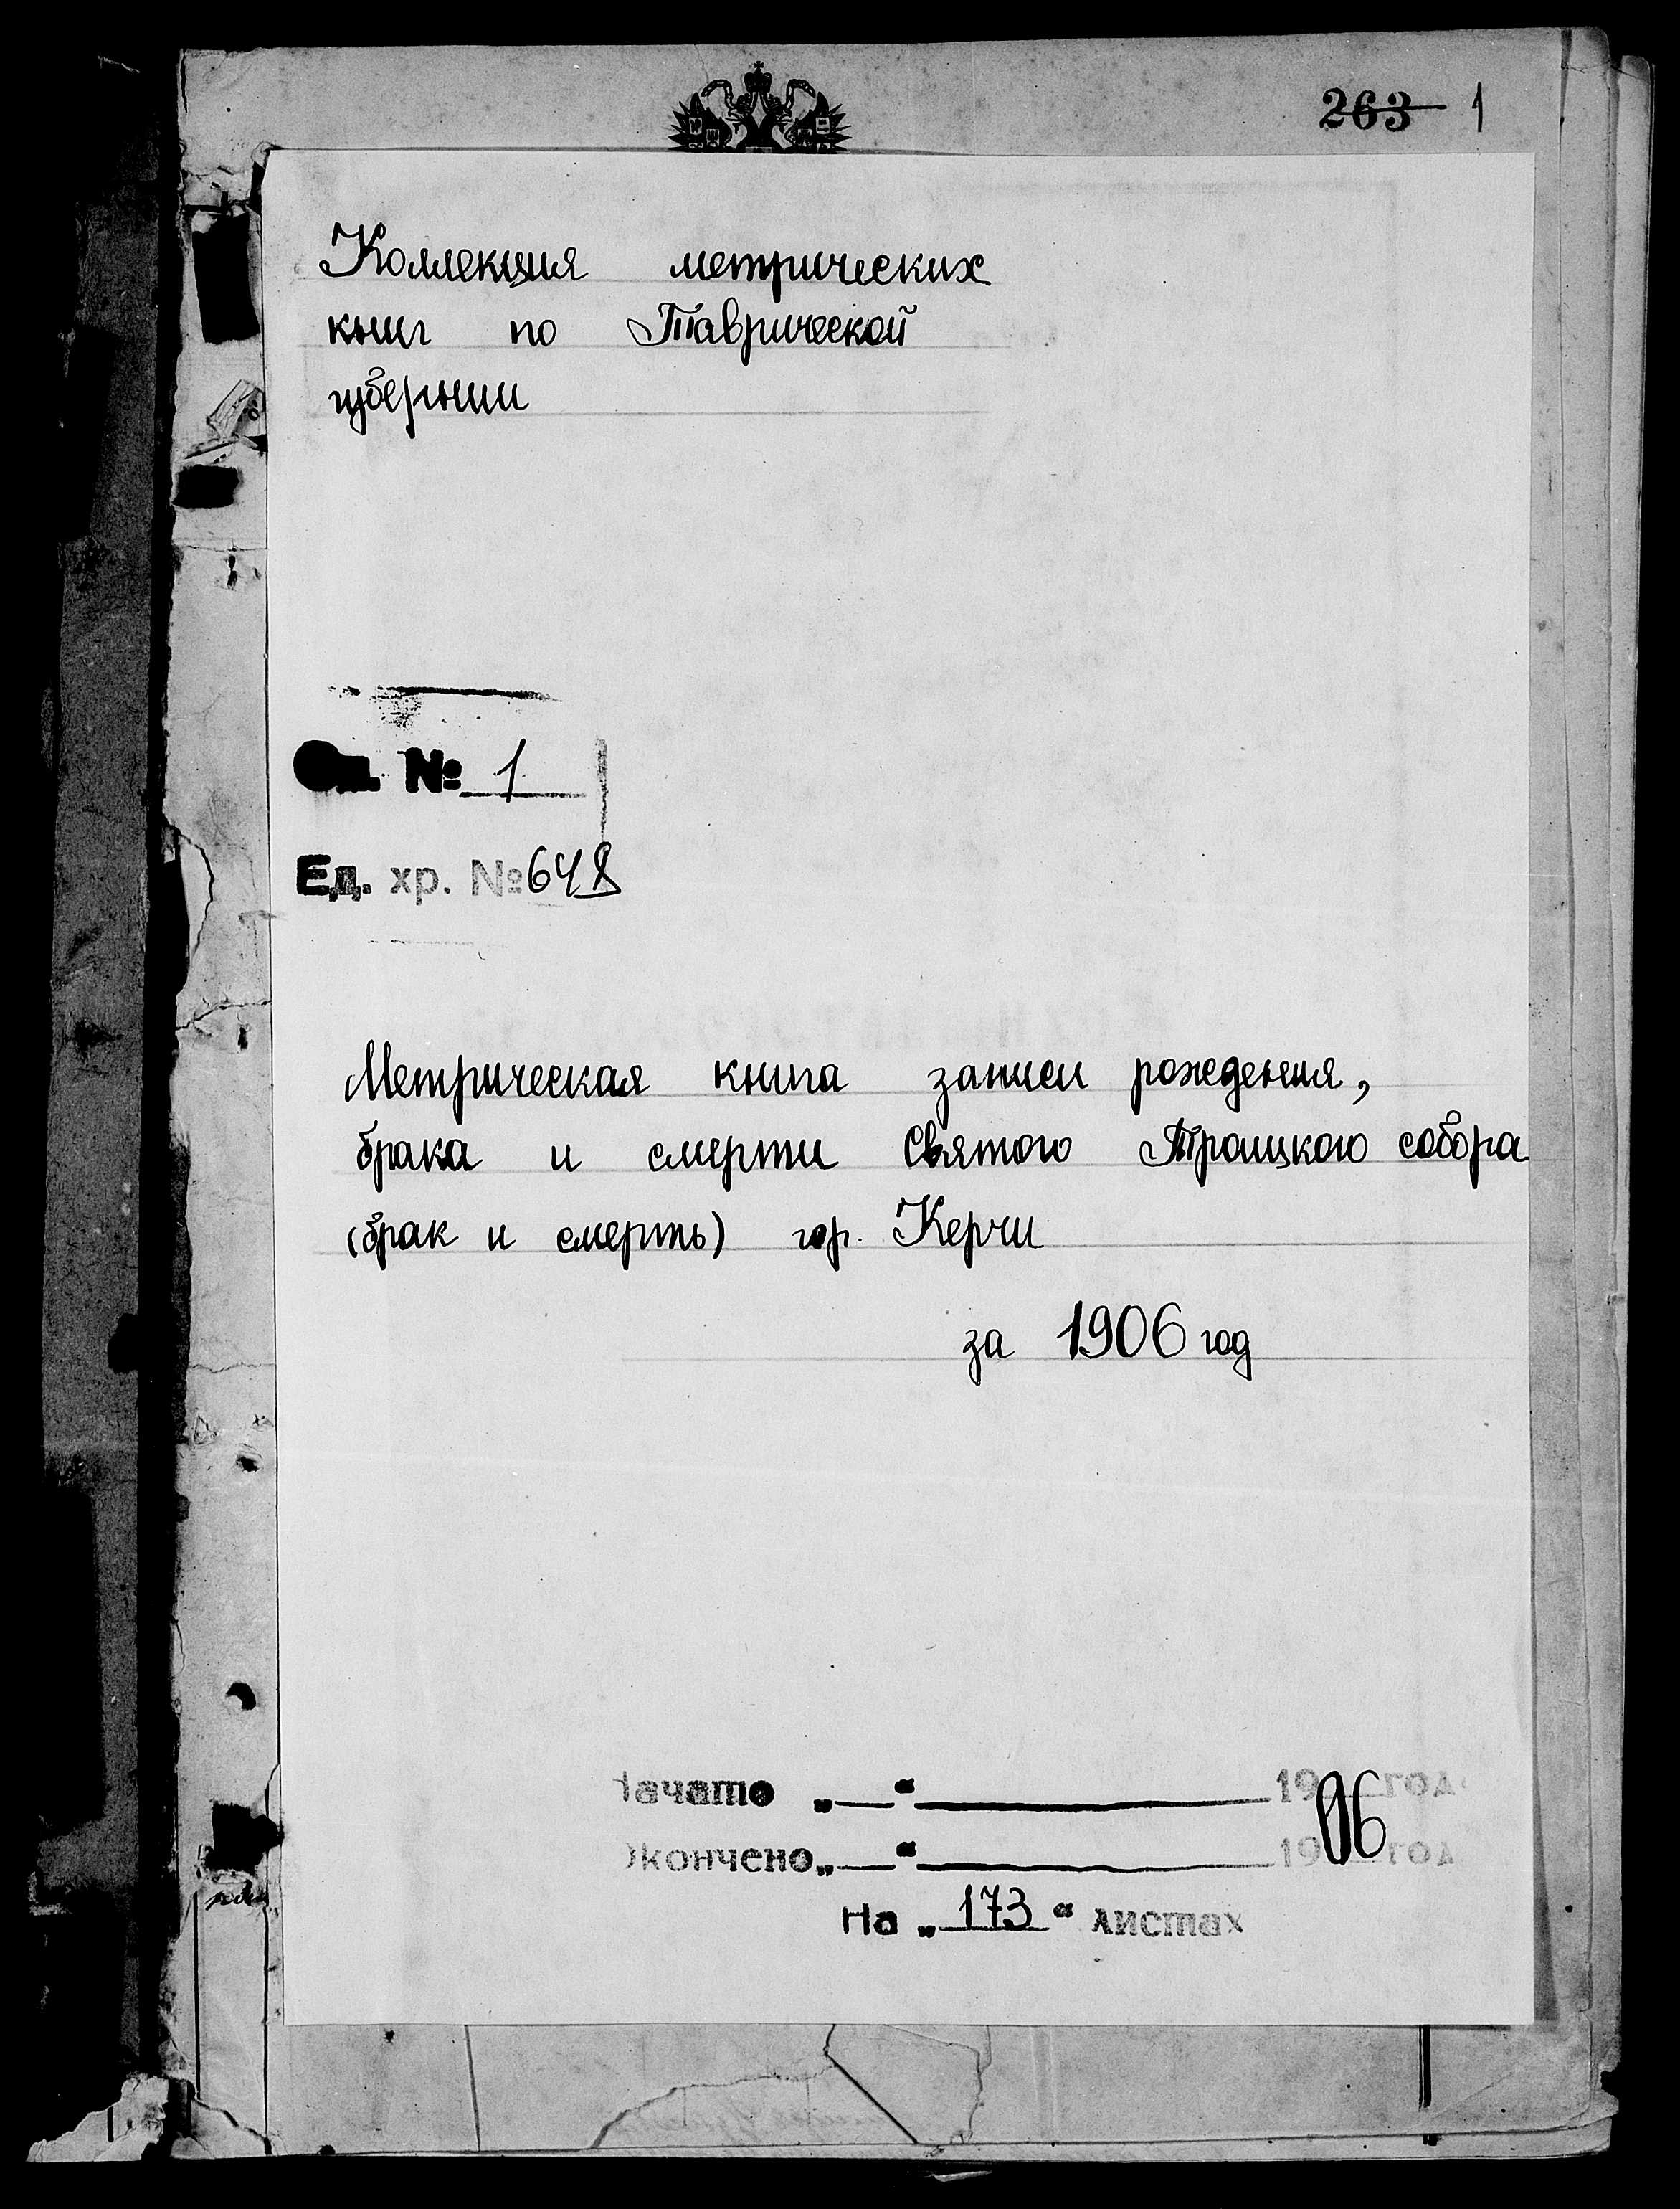 263 1
Коллекция метрических
книг по Таврической
губернии
Оп. № 1
Ед. хр. № 648
Метрическая книга записи рождения,
брака и смерти Святого Троицкого собора
(брак и смерть) гор. Керчи
за 1906 год
Начато „ “ 1906 год
Окончено „ “ 19 год
На „173“ листах